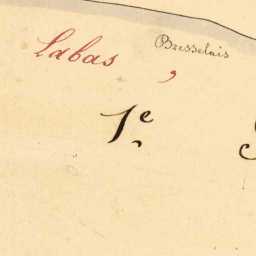 Labas,
Bresselais
1e